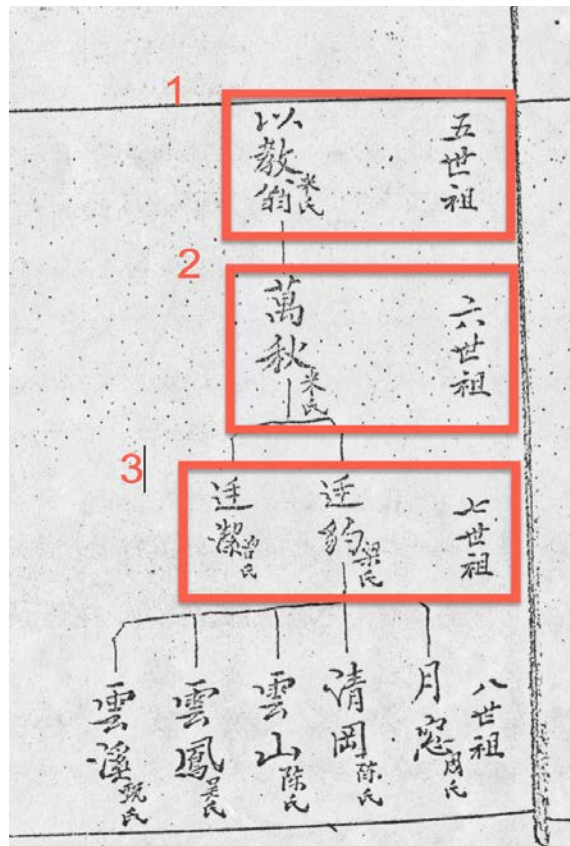 1
五世祖
以教翁
2
六世祖
萬秋
3
七世祖
廷豹梁氏
廷
八世祖
月窓周氏
清岡陳氏
雲山陳氏
雲鳳吴氏
雲溪甄氏